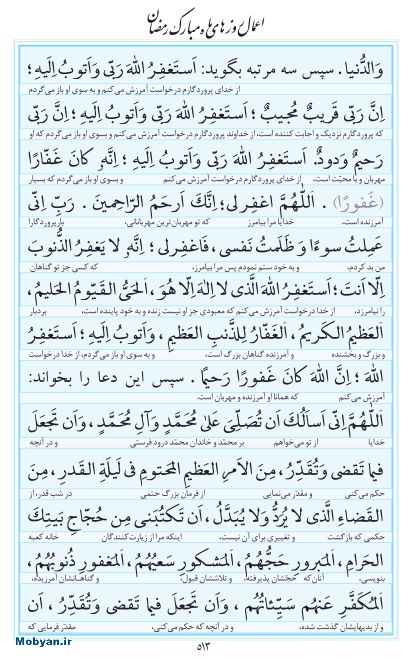 اعمال روزهای ماه مبارک رمضان
وَالدُّنیا. سپس سه مرتبه بگوید: اَستَغفِرُ اللّٰهَ رَبّی وَاَتوبُ اِلَیهِ؛
از خدای پروردگارم درخواست آمرزش می‌کنم و به سوی او باز می‌گردم
اِنَّ رَبّی قَریبٌ مُجیبٌ؛ اَستَغفِرُ اللّٰهَ رَبّی وَاَتوبُ اِلَیهِ؛ اِنَّ رَبّی
که پروردگارم نزدیک و اجابت کننده است، از خداوند پروردگارم درخواست آمرزش می‌کنم و بسوی او باز می‌گردم که او
رَحیمٌ وَدودٌ. اَستَغفِرُ اللّٰهَ رَبّی وَاَتوبُ اِلَیهِ؛ اِنَّهُ کانَ غَفّارًا
مهربان و با محبّت است، از خدای پروردگارم درخواست آمرزش می‌کنم و بسوی او باز می‌گردم که بسیار
(غَفورًا). اَللّٰهُمَّ اغفِرلی؛ اِنَّكَ اَرحَمُ الرّاحِمینَ. رَبِّ اِنّی
آمرزنده است، خدایا مرا بیامرز که تو مهربان‌ترین مهربانانی، پروردگارا
عَمِلتُ سوءًا وَظَلَمتُ نَفسی، فَاغفِرلی؛ اِنَّهُ لا یَغفِرُ الذُّنوبَ
من بد کردم، و به خود ستم نمودم پس مرا بیامرز، که کسی جز تو گناهان
اِلّا اَنتَ؛ اَستَغفِرُ اللّٰهَ الَّذی لا اِلٰهَ اِلّا هُوَ، اَلحَیُّ القَیّومُ الحَلیمُ،
را نیامرزد، از خدا درخواست آمرزش می‌کنم که معبودی جز او نیست زنده و به خود پاینده است، بردبار
اَلعَظیمُ الکَریمُ، اَلغَفّارُ لِلذَّنبِ العَظیمِ، وَاَتوبُ اِلَیهِ؛ اَستَغفِرُ
و بزرگ و بخشنده و آمرزنده گناهان بزرگ است، و به سوی او باز می‌گردم، از خدا درخواست
اللّٰهَ؛ اِنَّ اللّٰهَ کانَ غَفورًا رَحیمًا. سپس این دعا را بخواند:
آمرزش می‌کنم که همانا او آمرزنده و مهربان است.
اَللّٰهُمَّ اِنّی اَساَلُكَ اَن تُصَلِّیَ عَلیٰ مُحَمَّدٍ وَآلِ مُحَمَّدٍ، وَاَن تَجعَلَ
خدایا از تو می‌خواهم بر محمّد و خاندان محمّد درود فرستی و در آنچه
فیما تَقضی وَتُقَدِّرُ، مِنَ الاَمرِ العَظیمِ المَحتومِ فی لَیلَةِ القَدرِ، مِنَ
حکم می‌کنی و مقدّر می‌نمایی از فرمان بزرگ حتمی در شب قدر، از
القَضاءِ الَّذی لا یُرَدُّ وَلا یُبَدَّلُ، اَن تَکتُبَنی مِن حُجّاجِ بَیتِكَ
حکمی که بازگشت و تغییری برای آن نیست، اینکه مرا از زیارت کنندگان خانه کعبه
الحَرامِ، اَلمَبرورِ حَجُّهُم، اَلمَشکورِ سَعیُهُم، اَلمَغفورِ ذُنوبُهُم،
بنویسی، آنان که حجّشان پذیرفته، و تلاششان قبول، و گناهانشان آمرزیده،
اَلمُکَفَّرِ عَنهُم سَیِّئاتُهُم، وَاَن تَجعَلَ فیما تَقضی وَتُقَدِّرُ، اَن
و از بدیهایشان گذشت شده، و در آنچه که حکم می‌کنی، مقدّر فرمایی که
Mobyan.ir
۵۱۳